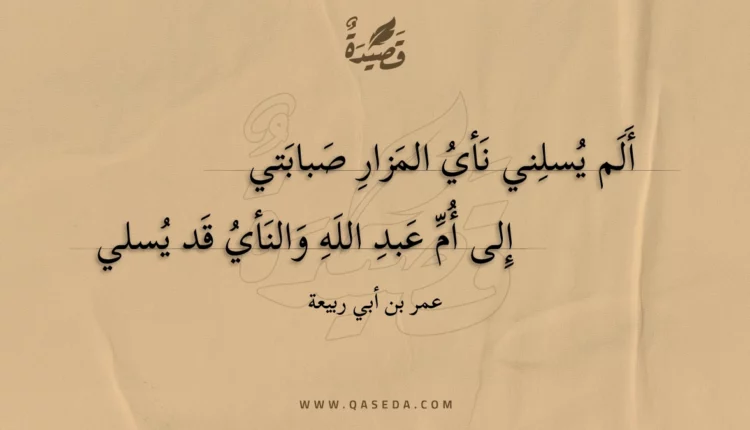 قَصِيدَةٌ
أَلَم يُسلِني نَأيُ المَزارِ صَبابَتي
إِلى أُمِّ عَبدِ اللَهِ وَالنَأيُ قَد يُسلي
عمر بن أبي ربيعة
WWW.QASEDA.COM